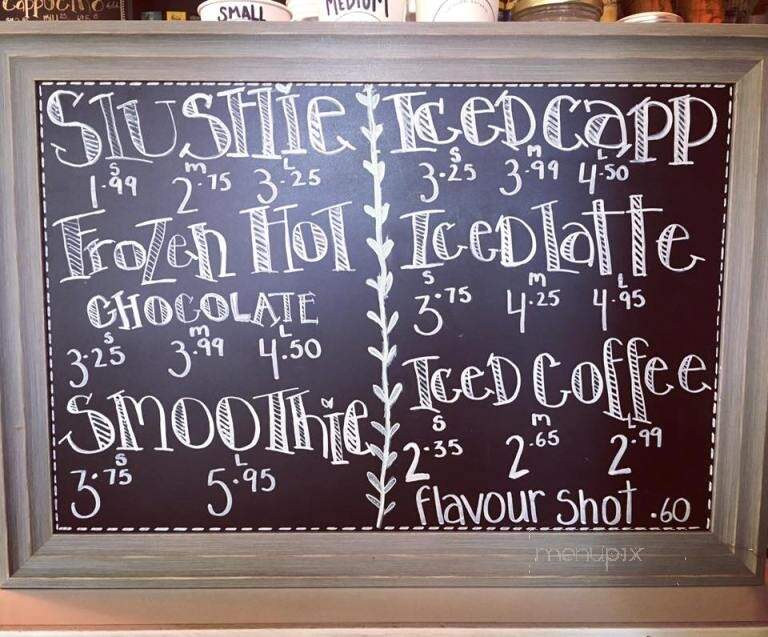 cappucino
SMALL
MEDIUM
SLUSHIE
S M L
1.99 2.75 3.25
Frozen Hot
CHOCOLATE
S M L
3.25 3.99 4.50
SMOOThie
S L
3.75 5.95
IceD Capp
S M L
3.25 3.99 4.50
IceD Latte
S M L
3.75 4.25 4.95
IceD Coffee
S M L
2.35 2.65 2.99
flavour shot .60
menupix